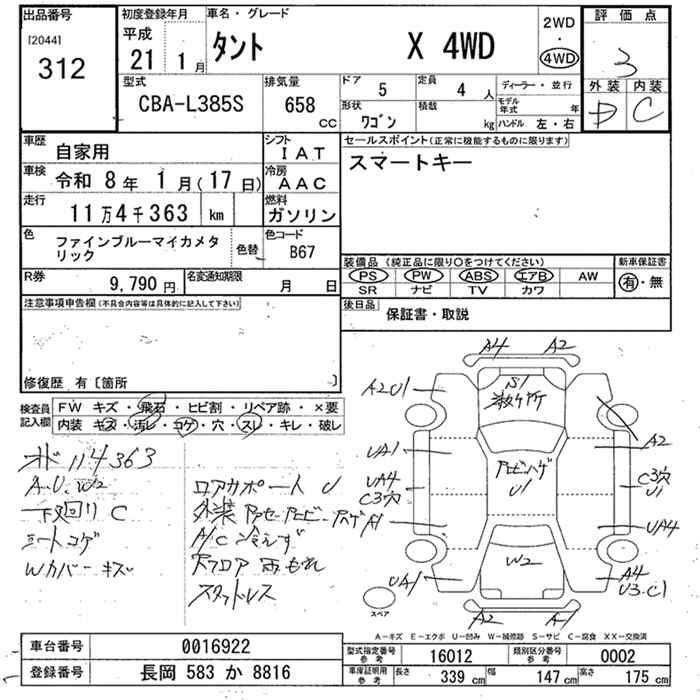 出品番号
[2044]
312
初度登録年月
平成
21 1月
車名・グレード
タント X 4WD
2WD
・
4WD
評価点
3
外装 内装
D C
型式
CBA-L385S
排気量
658 CC
ドア 5
定員 4 人
ディーラー・並行
形状 ワゴン
積載 kg
モデル年式 年
ハンドル 左・右
車歴 自家用
シフト IAT
車検 令和 8年 1月(17日)
冷房 AAC
走行 11万4千363 km
燃料 ガソリン
色 ファインブルーマイカメタリック
色替
色コード B67
R券 9,790円
名変通知期限 月 日
セールスポイント(正常に機能するものに限ります)
スマートキー
装備品 (純正品に限り○をつけてください)
新車保証書
PS PW ABS エアB AW
有・無
SR ナビ TV カワ
後日品 保証書・取説
注意事項申告欄(不具合内容等は具体的に記入して下さい)
修復歴 有〔箇所 〕
検査員記入欄
FW キズ・飛石・ヒビ割・リペア跡・×要
内装 キズ・汚レ・コゲ・穴・スレ・キレ・破レ
オド 114363
A.U.W2
下廻り C
シートコゲ
Wカバーキズ
ロアカポート U
A/C 冷えず
スタッドレス
A4 A2
A2U1
S1
UA1
A2
UA4
C3穴
C3穴
U1
U1
A1
UA4
UA1
W2
A4
U3.C1
A2 A1
スペア
A-キズ E-エクボ U-凹み W-補修跡 S-サビ C-腐食 XX-交換済
車台番号 0016922
登録番号 長岡 583 か 8816
型式指定番号 参考 16012
類別区分番号 参考 0002
車庫証明用 参考 長さ 339 cm 幅 147 cm 高さ 175 cm